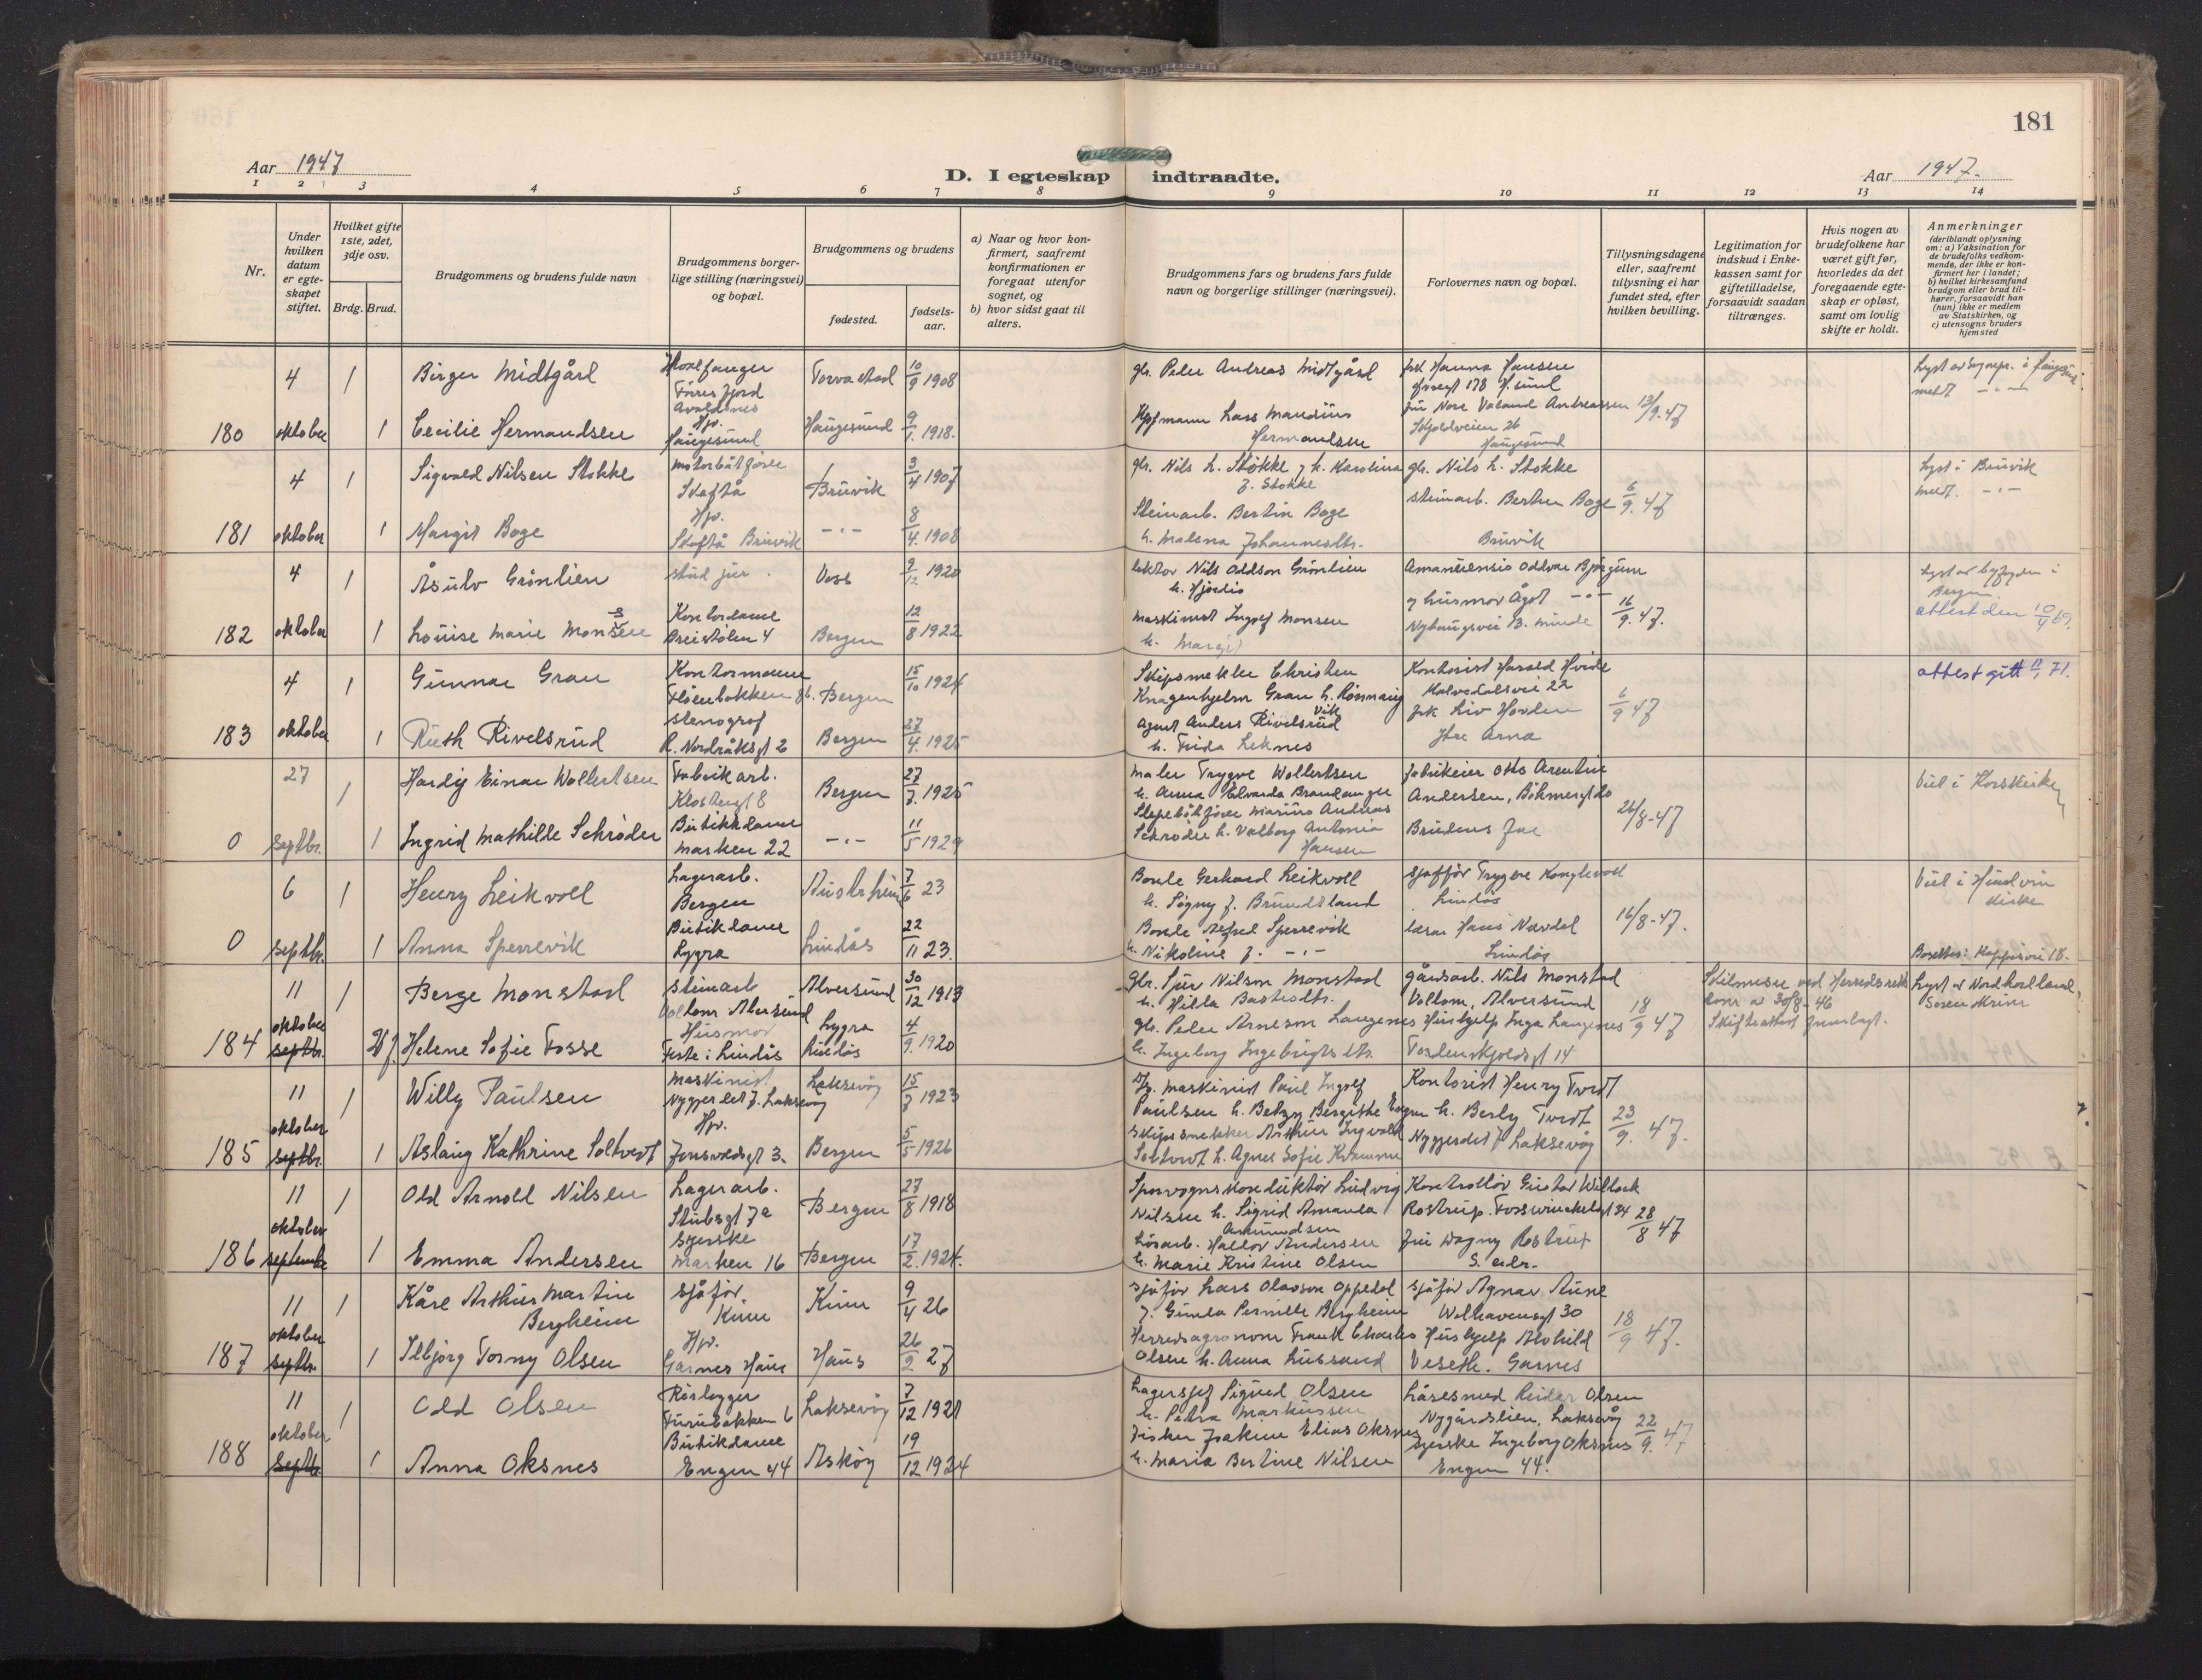 181
Aar 1947
D. I egteskap indtraadte.
Aar 1947.
1 2 3 4 5 6 7 8 9 10 11 12 13 14
Nr.
Under hvilken datum er egte-skapet stiftet.
Hvilket gifte 1ste, 2det, 3dje osv.
Brdg. Brud.
Brudgommens og brudens fulde navn
Brudgommens borger-lige stilling (næringsvei) og bopæl.
Brudgommens og brudens
fødested.
fødsels-aar.
a) Naar og hvor kon-firmert, saafremt konfirmationen er foregaat utenfor sognet, og
b) hvor sidst gaat til alters.
Brudgommens fars og brudens fars fulde navn og borgerlige stillinger (næringsvei).
Forlovernes navn og bopæl.
Tillysningsdagene eller, saafremt tillysning ei har fundet sted, efter hvilken bevilling.
Legitimation for indskud i Enke-kassen samt for giftetilladelse, forsaavidt saadan tiltrænges.
Hvis nogen av brudefolkene har været gift før, hvorledes da det foregaaende egte-skap er opløst, samt om lovlig skifte er holdt.
Anmerkninger
(deriblandt oplysning om: a) Vaksination for de brudefolks vedkom-mende, der ikke er kon-firmert her i landet; b) hvilket kirkesamfund brudgom eller brud til-hører, forsaavidt han (hun) ikke er medlem av Statskirken, og c) utensogns bruders hjemsted
4 1 Birger Midtgård Hvalfanger Førresfjord Avaldsnes Torvastad 10/9 1908 gbr. Peder Andreas Midtgård frk Hanna Hansen
180 oktober 1 Cecilie Hermandsen Hjv. Haugesund Haugesund 9/1 1918. Kjøpmann Lars Mandius Hermandsen Skjoldveien 26 Haugesund 13/9-47
4 1 Sigvald Nilsen Stokke Motorbåtfører Skaftå Bruvik 3/4 1907 gbr. Nils L. Stokke f. h. Karolina f. Stokke gbr. Nils L. Stokke Lyst i Bruvik meldt. -"-
181 oktober 1 Margit Boge Hjv. Skaftå Bruvik -"- 8/4 1908 Steinarb. Bertin Boge h. Malena Johannesdtr. steinarb. Berten Boge Bruvik 6/9. 47
4 1 Åsulv Grönlien stud jur. Voss 9/12 1920 lektor Nils Oddson Grönlien h. Hjørdis Amanuensis Oddvar Bjørgum
182 oktober 1 Louise Marie Monsen Kontordame Breistølen 4 Bergen 12/8 1922 maskinist Ingolf Monsen h. Margit og husmor Ågot -"- 16/9. 47. attest den 10/4 69.
4 1 Gunnar Gran Kontormann Fløenbakken 8b. Bergen 15/10 1924 Skipsmekler Christen Knagenhjelm Gran h. Rønnaug Vik Kontorist Harald Hvide Kalvedalsvei 22 attest gitt 71.
183 oktober 1 Ruth Rivelsrud stenograf R. Nordråksgt 2 Bergen 27/4. 1925 Agent Anders Rivelsrud h. Frida Leknes frk Liv Hovden Ytre Arna 6/9 47
27 1 Hardy Einar Wollertsen Fabrikarb. Klostergt 8 Bergen 27/7. 1925 Maler Trygve Wollertsen h. Anna Edvarda Brandanger Fabrikeier Otto Arentin Andersen, Böhmergt Viel i Korskirken
0 septbr. 1 Ingrid Mathilde Schrøder Butikkdame Marken 22 -"- 11/5 1929 Slepebåtfører Marius Andreas Schrøder h. Valborg Antonia Hansen Brudens far 26/8-47
6 1 Henry Leikvoll Lagerarb. Bergen Austrheim 7/6 23 Bonde Gerhard Leikvoll h. Signy f. Brundtland sjafför Trygve Konglevoll Lindås Viel i Hundvin Kirke
0 septbr. 1 Anna Sperrevik Butikdame Lygra Lindås 22/11 23. Bonde Alfred Sperrevik h. Nikoline f. -"- lærar Hans Nævdal Lindås 16/8-47.
11 1 Berge Monstad steinarb Vollom Alversund Alversund 30/12 1913 Gbr. Sjur Nilson Monstad h. Hilda gårdsarb. Nils Monstad Vollom, Alversund Skilmisse ved Herredsrett dom av 30/8-46
184 oktober septbr. 2 f Helene Sofie Fosse Husmor Feste i Lindås Lygra Lindås 4/9. 1920 gbr. Peder Arneson Langenes h. Ingeborg Ingebrigtsdtr. Hushjelp Inga Langenes Tordenskjoldsgt 14 18/9 47 Lyst av Nordhordland Sorenskriver
11 1 Willy Paulsen Maskinist Nygjerdet 7. Laksevåg Laksevåg 15/7 1923 maskinist Paul Ingolf Paulsen h. Betzy Bergithe Kontorist Henry Tvedt h. Berly Tvedt
185 oktober septbr. 1 Aslaug Kathrine Soltvedt Hjv. Jonsvollsgt 3. Bergen 5/5 1926 skipssmekker Arthur Ingvald Soltvedt h. Agnes Sofie Kvamme Nygjerdet 7 Laksevåg 23/9. 47.
11 1 Odd Arnold Nilsen Lagerarb. Stubsgt 7a Bergen 27/8 1918 Sporvognskonduktør Ludvig Nilsen h. Sigrid Amanda Asmundsen Kontrollør Gustav Rostrup. Fosswinckelsgt 34
186 oktober september 1 Emma Andersen Syerske Marken 16 Bergen 17/2. 1924. Løsarb. Haldor Andersen h. Marie Kristine Olsen fru Dagny Rostrup S. adr. 28/8 47
11 1 Kåre Arthur Martin Bergheim sjåfør Kinn Kinn 9/4 26 sjåfør Lars Olavson Oppedal f. Gunda Pernille Bergheim sjåfør Agnar Aune Welhavensgt 30
187 oktober septbr. 1 Ilbjørg Torny Olsen Hjv. Garnes Haus Haus 26/2 27 Herredsagronom Frank Charles Olsen h. Anna Hushjelp Alvhild Veseth. Garnes 18/9 47.
11 1 Odd Olsen Rørlegger Furubakken 6 Laksevåg 7/12 1921 Lagersjef Sigurd Olsen h. Petra Markussen Låsesmed Reidar Olsen Nygårdslien, Laksevåg
188 oktober septbr 1 Anna Oksnes Butikdame Engen 44 Askøy 19/12 1924 Fisker Joakim Elias Oksnes h. Maria Bertine Nilsen syerske Ingeborg Oksnes Engen 44. 22/9. 47